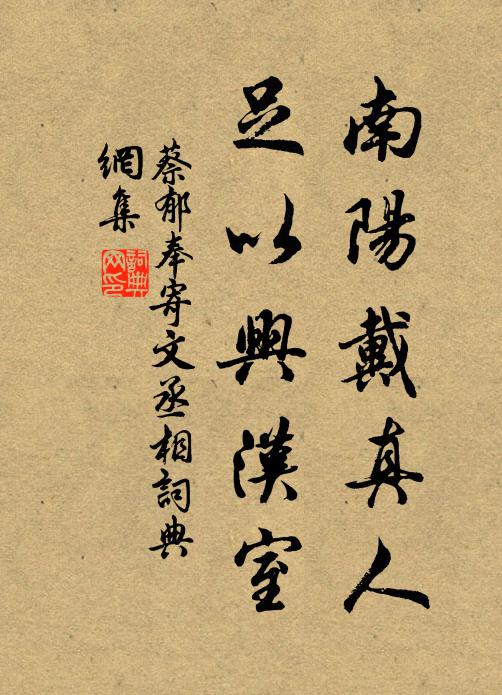 南陽戴真人
足以興漢室
蔡郁奉寄文丞相詞典
網集
詞典网印